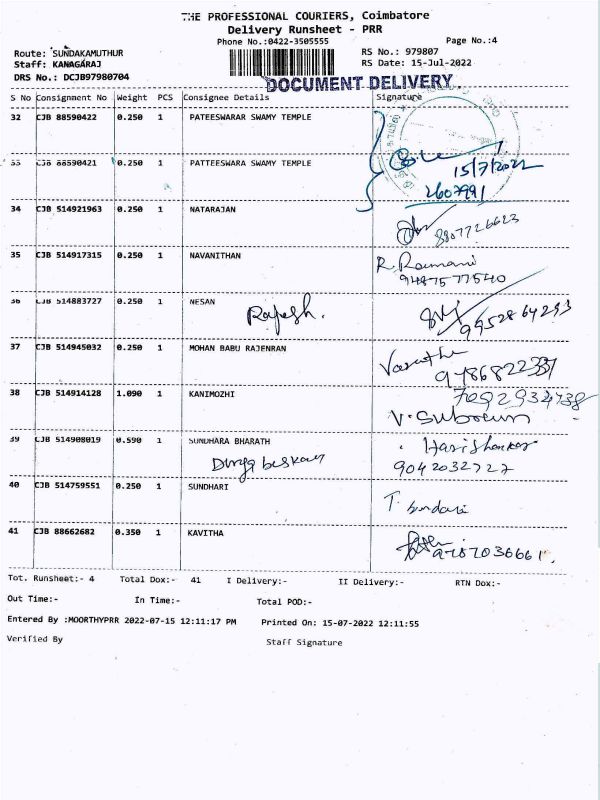 THE PROFESSIONAL COURIERS, Coimbatore
Delivery Runsheet - PRR
Phone No.:0422-3505555 Page No.:4
Route: SUNDAKAMUTHUR RS No.: 979807
Staff: KANAGARAJ RS Date: 15-Jul-2022
DRS No.: DCJB97980704
DOCUMENT DELIVERY
S No Consignment No Weight PCS Consignee Details Signature
32 CJB 88590422 0.250 1 PATEESWARAR SWAMY TEMPLE
33 CJB 88590421 0.250 1 PATTEESWARA SWAMY TEMPLE
15/7/2022
2607991
34 CJB 514921963 0.250 1 NATARAJAN
8807726623
35 CJB 514917315 0.250 1 NAVANITHAN R. Ramani
9487577540
36 CJB 514883727 0.250 1 NESAN
Rajesh. 9952864293
37 CJB 514945032 0.250 1 MOHAN BABU RAJENRAN Vasantha
9486822337
38 CJB 514914128 1.090 1 KANIMOZHI 7092934738
39 CJB 514908019 0.590 1 SUNDHARA BHARATH Harishankar
Durga baskar 9042032727
40 CJB 514759551 0.250 1 SUNDHARI T. Sundari
41 CJB 88662682 0.350 1 KAVITHA
Tot. Runsheet:- 4 Total Dox:- 41 I Delivery:- II Delivery:- RTN Dox:-
Out Time:- In Time:- Total POD:-
Entered By :MOORTHYPRR 2022-07-15 12:11:17 PM Printed On: 15-07-2022 12:11:55
Verified By Staff Signature